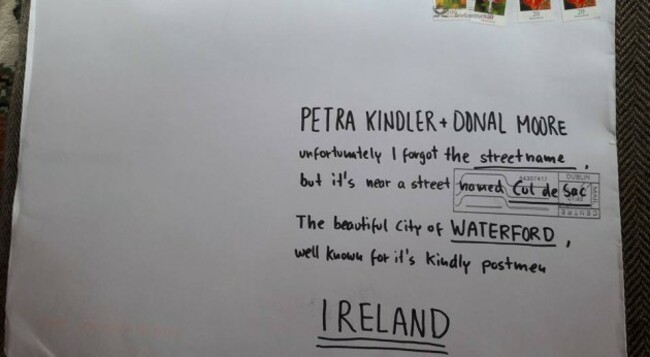 PETRA KINDLER + DONAL MOORE
unfortunately I forgot the streetname,
but it's near a street named Cul de Sac
DUBLIN
MAIL
CENTRE
The beautiful City of WATERFORD,
well known for it's kindly postmen
IRELAND